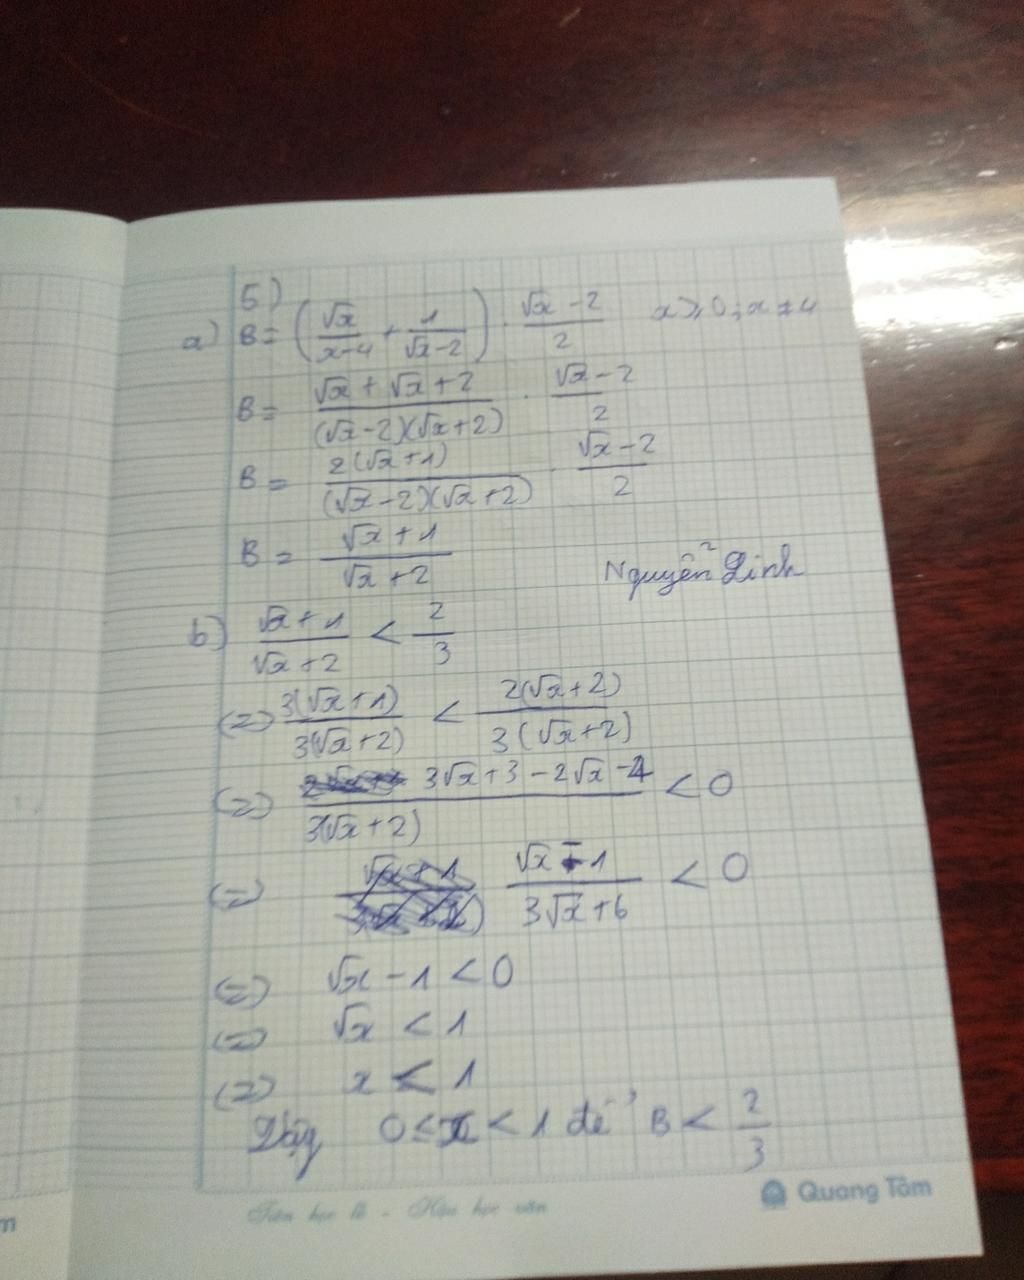 5)
a) B = (√x/(x-4) + 1/(√x-2)) · (√x-2)/2 x ≥ 0; x ≠ 4
B = (√x + √x + 2)/((√x-2)(√x+2)) · (√x-2)/2
B = 2(√x+1)/((√x-2)(√x+2)) · (√x-2)/2
B = (√x+1)/(√x+2)
Nguyễn Linh
b) (√x+1)/(√x+2) < 2/3
(=) 3(√x+1)/(3(√x+2)) < 2(√x+2)/(3(√x+2))
(=) (3√x+3-2√x-4)/(3(√x+2)) < 0
(=) (√x-1)/(3√x+6) < 0
(=) √x - 1 < 0
(=) √x < 1
(=) x < 1
Vậy 0 ≤ x < 1 để B < 2/3
Tiên học lễ - Hậu học văn
Quang Tâm
m